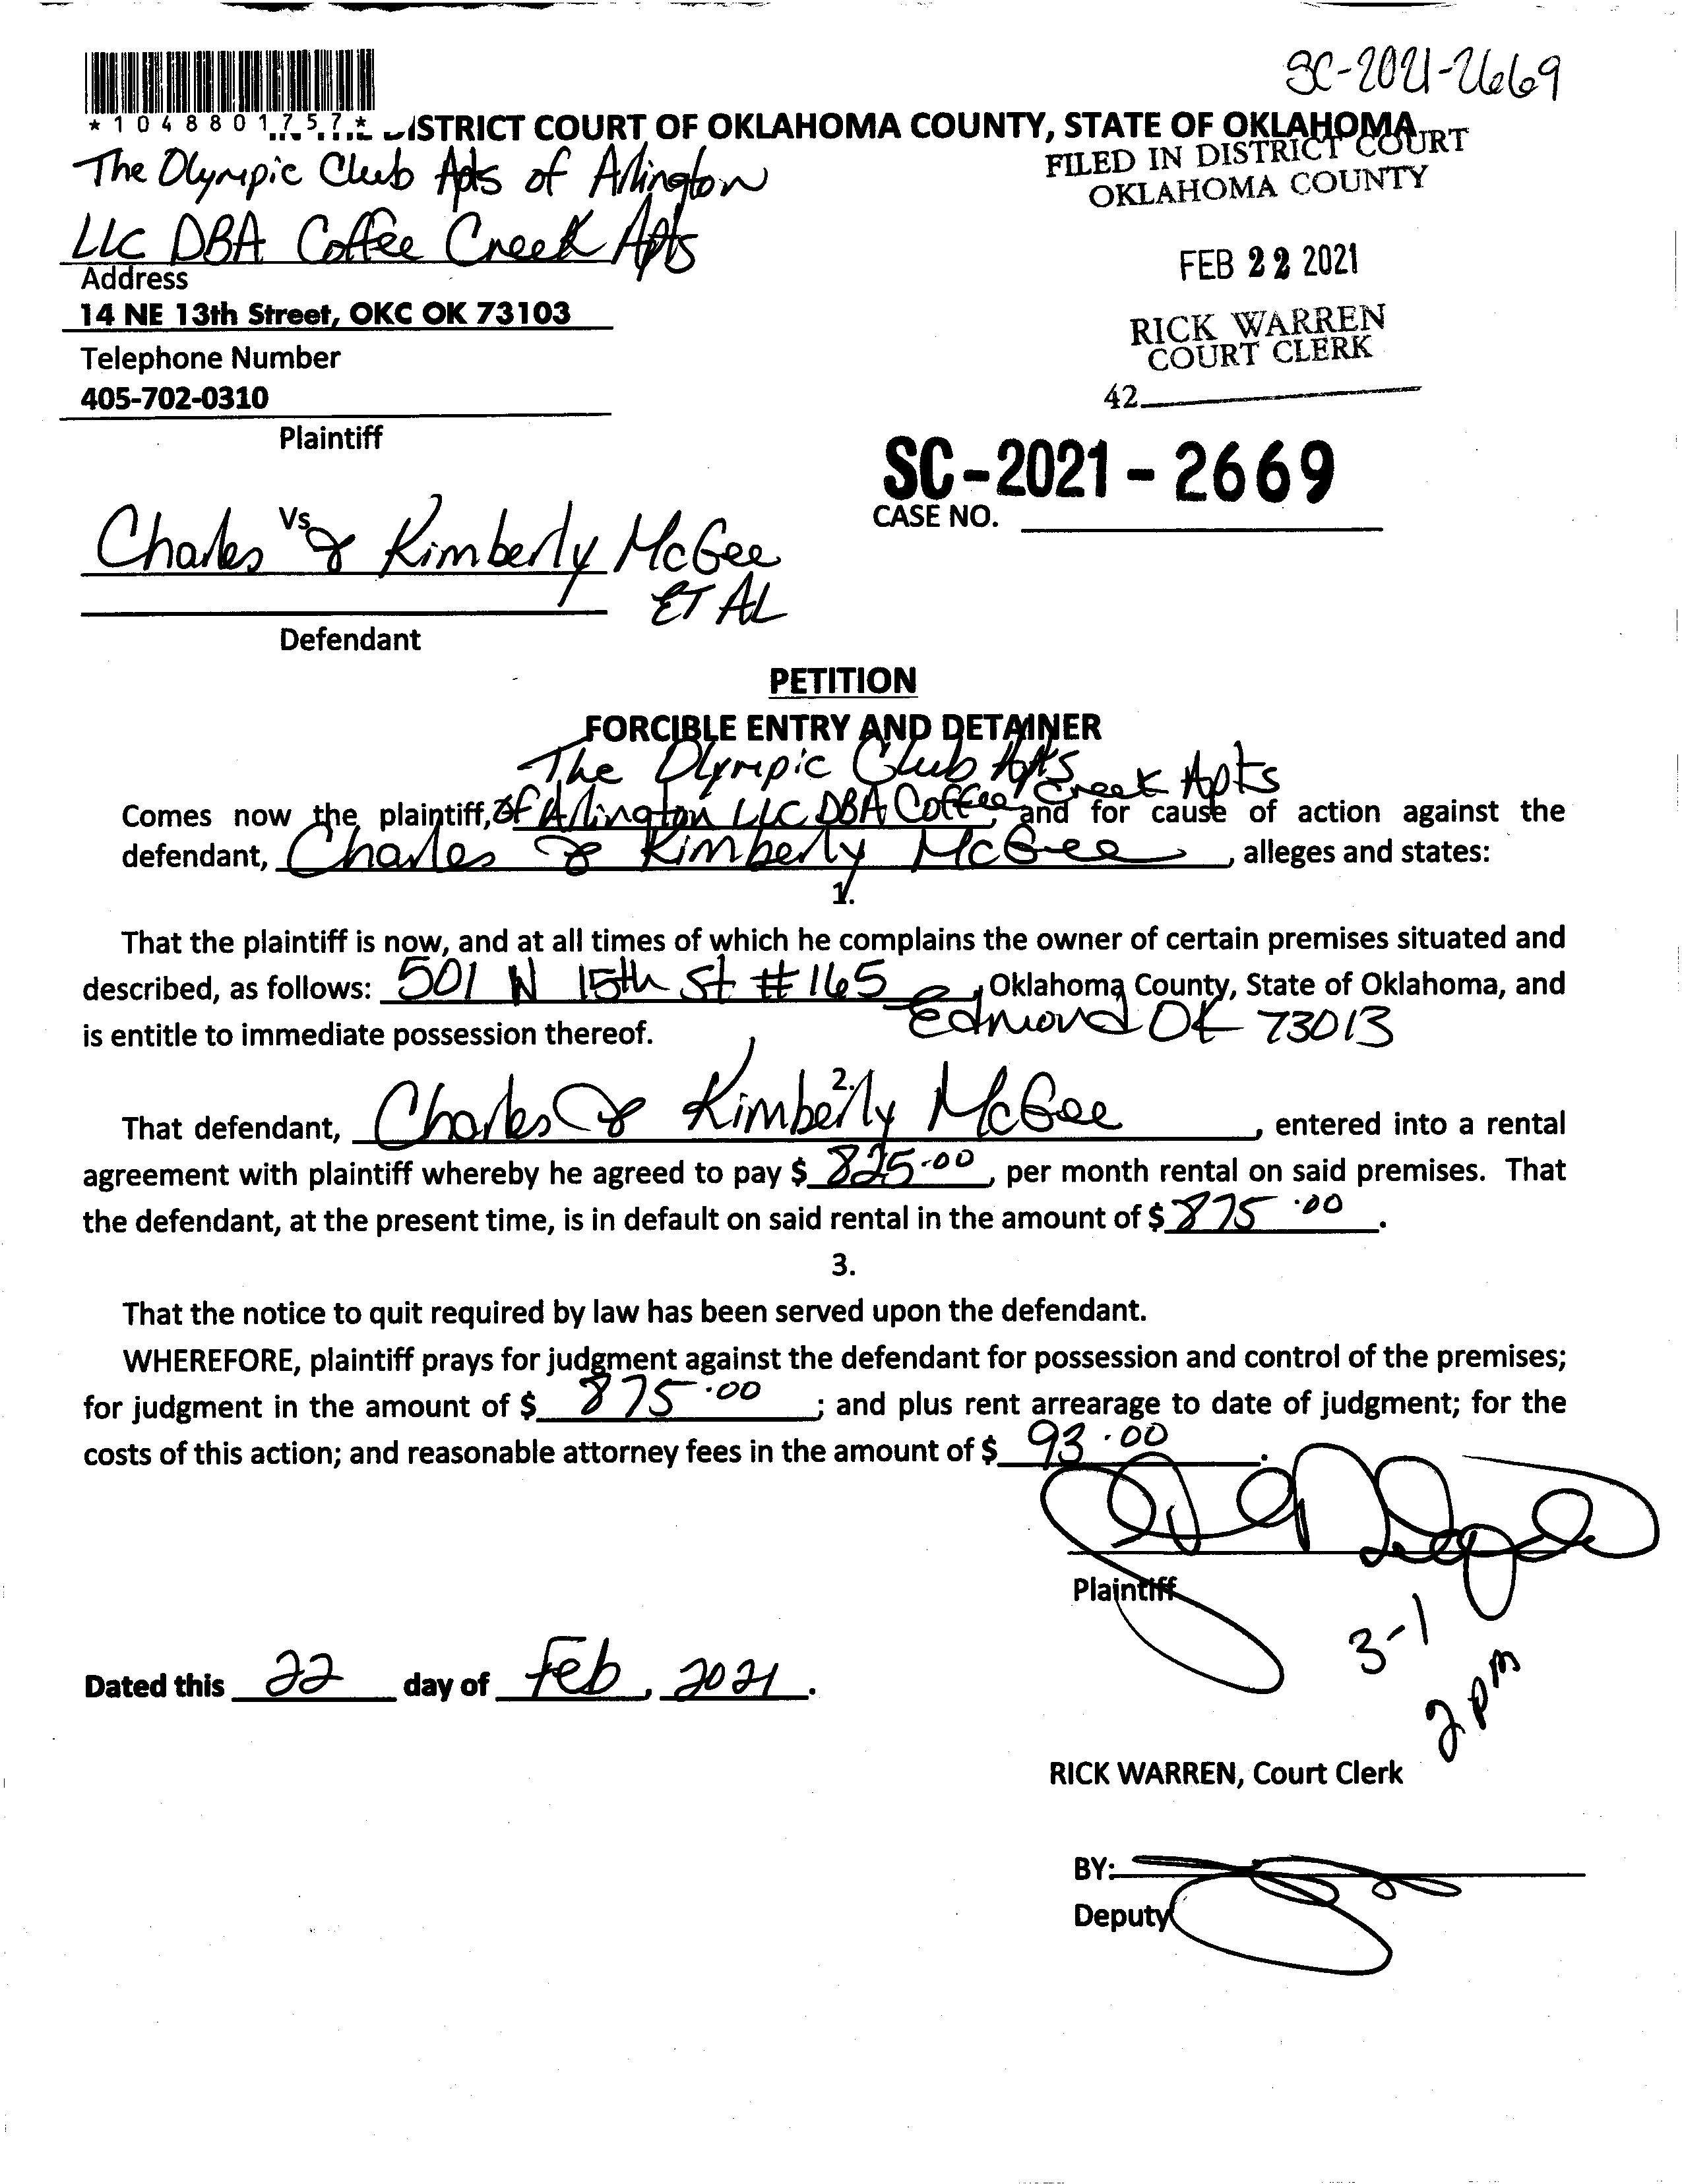 SC-2021-2669
*1048801757*
DISTRICT COURT OF OKLAHOMA COUNTY, STATE OF OKLAHOMA
The Olympic Club Apts of Arlington
LLC DBA Coffee Creek Apts
FILED IN DISTRICT COURT
OKLAHOMA COUNTY
FEB 22 2021
RICK WARREN
COURT CLERK
42
Address
14 NE 13th Street, OKC OK 73103
Telephone Number
405-702-0310
Plaintiff
SC-2021-2669
CASE NO.
Vs
Charles & Kimberly McGee
ET AL
Defendant
PETITION
FORCIBLE ENTRY AND DETAINER
The Olympic Club Apts
Comes now the plaintiff, of Arlington LLC DBA Coffee Creek Apts, and for cause of action against the
defendant, Charles & Kimberly McGee, alleges and states:
1.
That the plaintiff is now, and at all times of which he complains the owner of certain premises situated and
described, as follows: 501 N 15th St # 165, Oklahoma County, State of Oklahoma, and
Edmond OK 73013
is entitle to immediate possession thereof.
2.
That defendant, Charles & Kimberly McGee, entered into a rental
agreement with plaintiff whereby he agreed to pay $ 825.00, per month rental on said premises. That
the defendant, at the present time, is in default on said rental in the amount of $ 875.00.
3.
That the notice to quit required by law has been served upon the defendant.
WHEREFORE, plaintiff prays for judgment against the defendant for possession and control of the premises;
for judgment in the amount of $ 875.00; and plus rent arrearage to date of judgment; for the
costs of this action; and reasonable attorney fees in the amount of $ 93.00.
Plaintiff
3-1
2pm
Dated this 22 day of Feb, 2021.
RICK WARREN, Court Clerk
BY:
Deputy